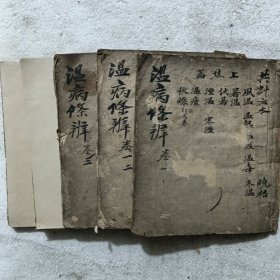 共計六本
上焦篇
風温 温熱 温疫 温毒 冬温
暑温 伏暑
濕温 寒濕
温瘧
秋燥
温病條辨 卷一
温病條辨 卷一二
温病條辨 卷三